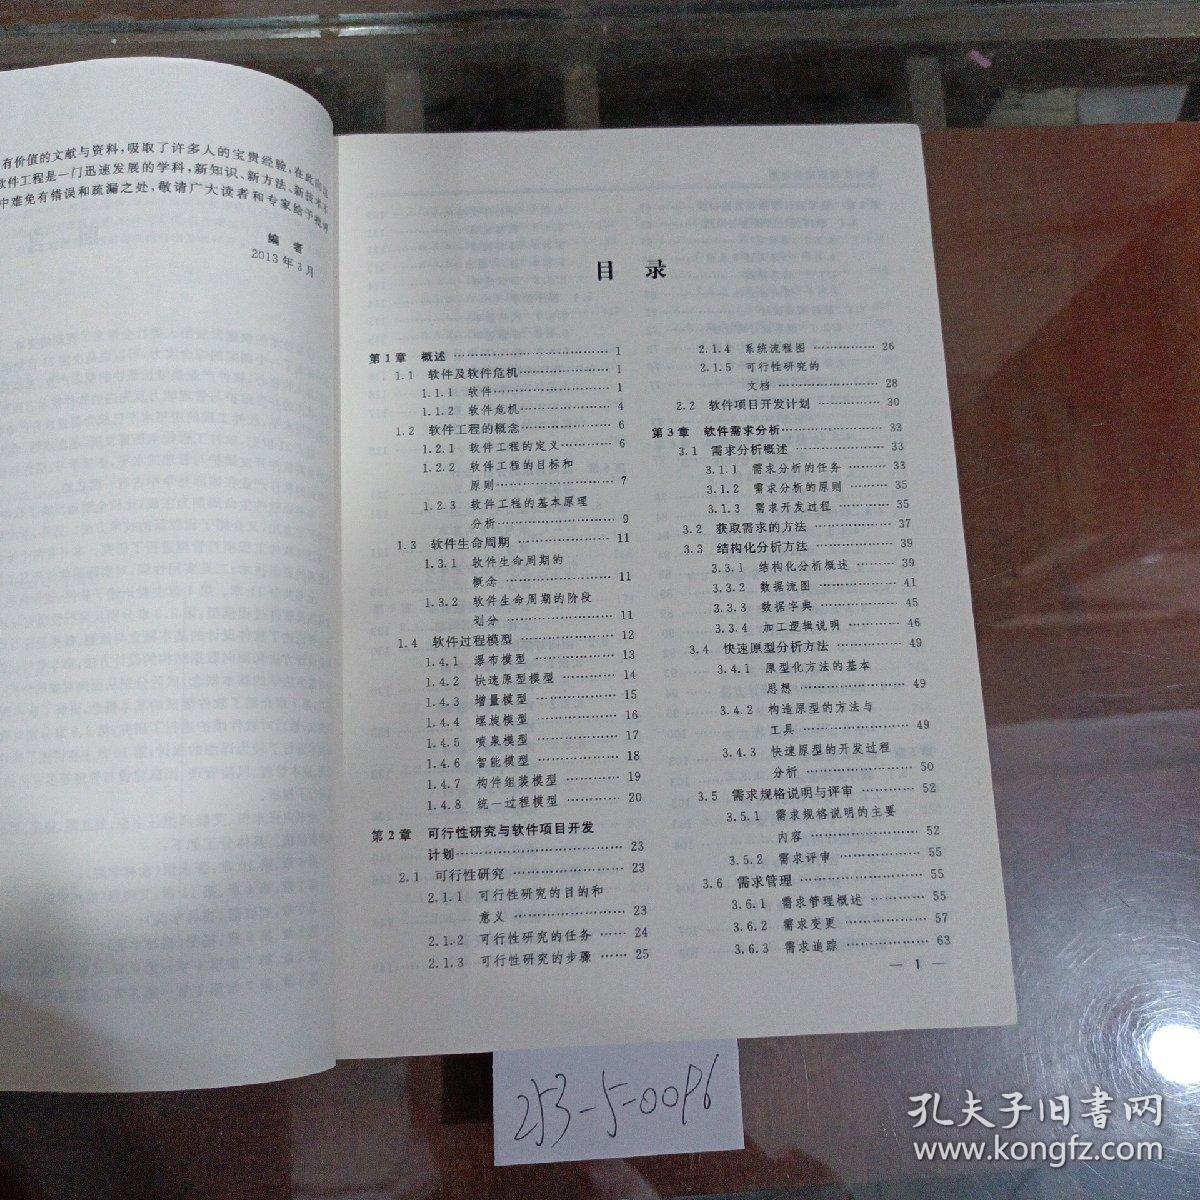 有价值的文献与资料,吸取了许多人的宝贵经验,在此
软件工程是一门迅速发展的学科,新知识、新方法、新技术不
中难免有错误和疏漏之处,敬请广大读者和专家给予批评
编 者
2013年3月
目 录
第1章 概述 …… 1
1.1 软件及软件危机 …… 1
1.1.1 软件 …… 1
1.1.2 软件危机 …… 4
1.2 软件工程的概念 …… 6
1.2.1 软件工程的定义 …… 6
1.2.2 软件工程的目标和
原则 …… 7
1.2.3 软件工程的基本原理
分析 …… 9
1.3 软件生命周期 …… 11
1.3.1 软件生命周期的
概念 …… 11
1.3.2 软件生命周期的阶段
划分 …… 11
1.4 软件过程模型 …… 12
1.4.1 瀑布模型 …… 13
1.4.2 快速原型模型 …… 14
1.4.3 增量模型 …… 15
1.4.4 螺旋模型 …… 16
1.4.5 喷泉模型 …… 17
1.4.6 智能模型 …… 18
1.4.7 构件组装模型 …… 19
1.4.8 统一过程模型 …… 20
第2章 可行性研究与软件项目开发
计划 …… 23
2.1 可行性研究 …… 23
2.1.1 可行性研究的目的和
意义 …… 23
2.1.2 可行性研究的任务 …… 24
2.1.3 可行性研究的步骤 …… 25
2.1.4 系统流程图 …… 26
2.1.5 可行性研究的
文档 …… 28
2.2 软件项目开发计划 …… 30
第3章 软件需求分析 …… 33
3.1 需求分析概述 …… 33
3.1.1 需求分析的任务 …… 33
3.1.2 需求分析的原则 …… 35
3.1.3 需求开发过程 …… 35
3.2 获取需求的方法 …… 37
3.3 结构化分析方法 …… 39
3.3.1 结构化分析概述 …… 39
3.3.2 数据流图 …… 41
3.3.3 数据字典 …… 45
3.3.4 加工逻辑说明 …… 46
3.4 快速原型分析方法 …… 49
3.4.1 原型化方法的基本
思想 …… 49
3.4.2 构造原型的方法与
工具 …… 49
3.4.3 快速原型的开发过程
分析 …… 50
3.5 需求规格说明与评审 …… 52
3.5.1 需求规格说明的主要
内容 …… 52
3.5.2 需求评审 …… 55
3.6 需求管理 …… 55
3.6.1 需求管理概述 …… 55
3.6.2 需求变更 …… 57
3.6.3 需求追踪 …… 63
— 1 —
253-5-0096
孔夫子旧书网
www.kongfz.com